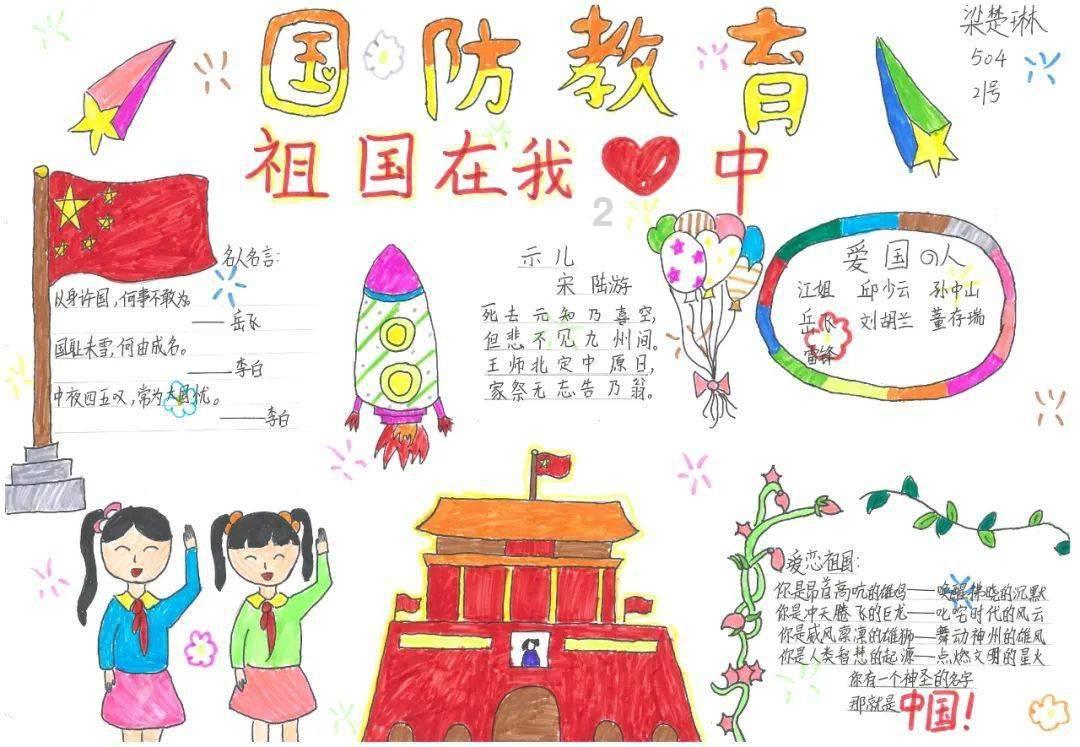 国防教育
梁楚琳
504
21号
祖国在我中
2
名人名言:
以身许国,何事不敢为。
——岳飞
国耻未雪,何由成名。
——李白
中夜四五叹,常为大国忧。
——李白
示儿
宋 陆游
死去元知乃喜空,
但悲不见九州间。
王师北定中原日,
家祭无忘告乃翁。
爱国の人
江姐 邱少云 孙中山
岳飞 刘胡兰 董存瑞
雷锋
爱恋祖国:
你是昂首高吭的雄鸡——唤醒拂晓的沉默
你是冲天腾飞的巨龙——叱咤时代的风云
你是威风凛凛的雄狮——舞动神州的雄风
你是人类智慧的起源——点燃文明的星火
你有一个神圣的名字
那就是中国!